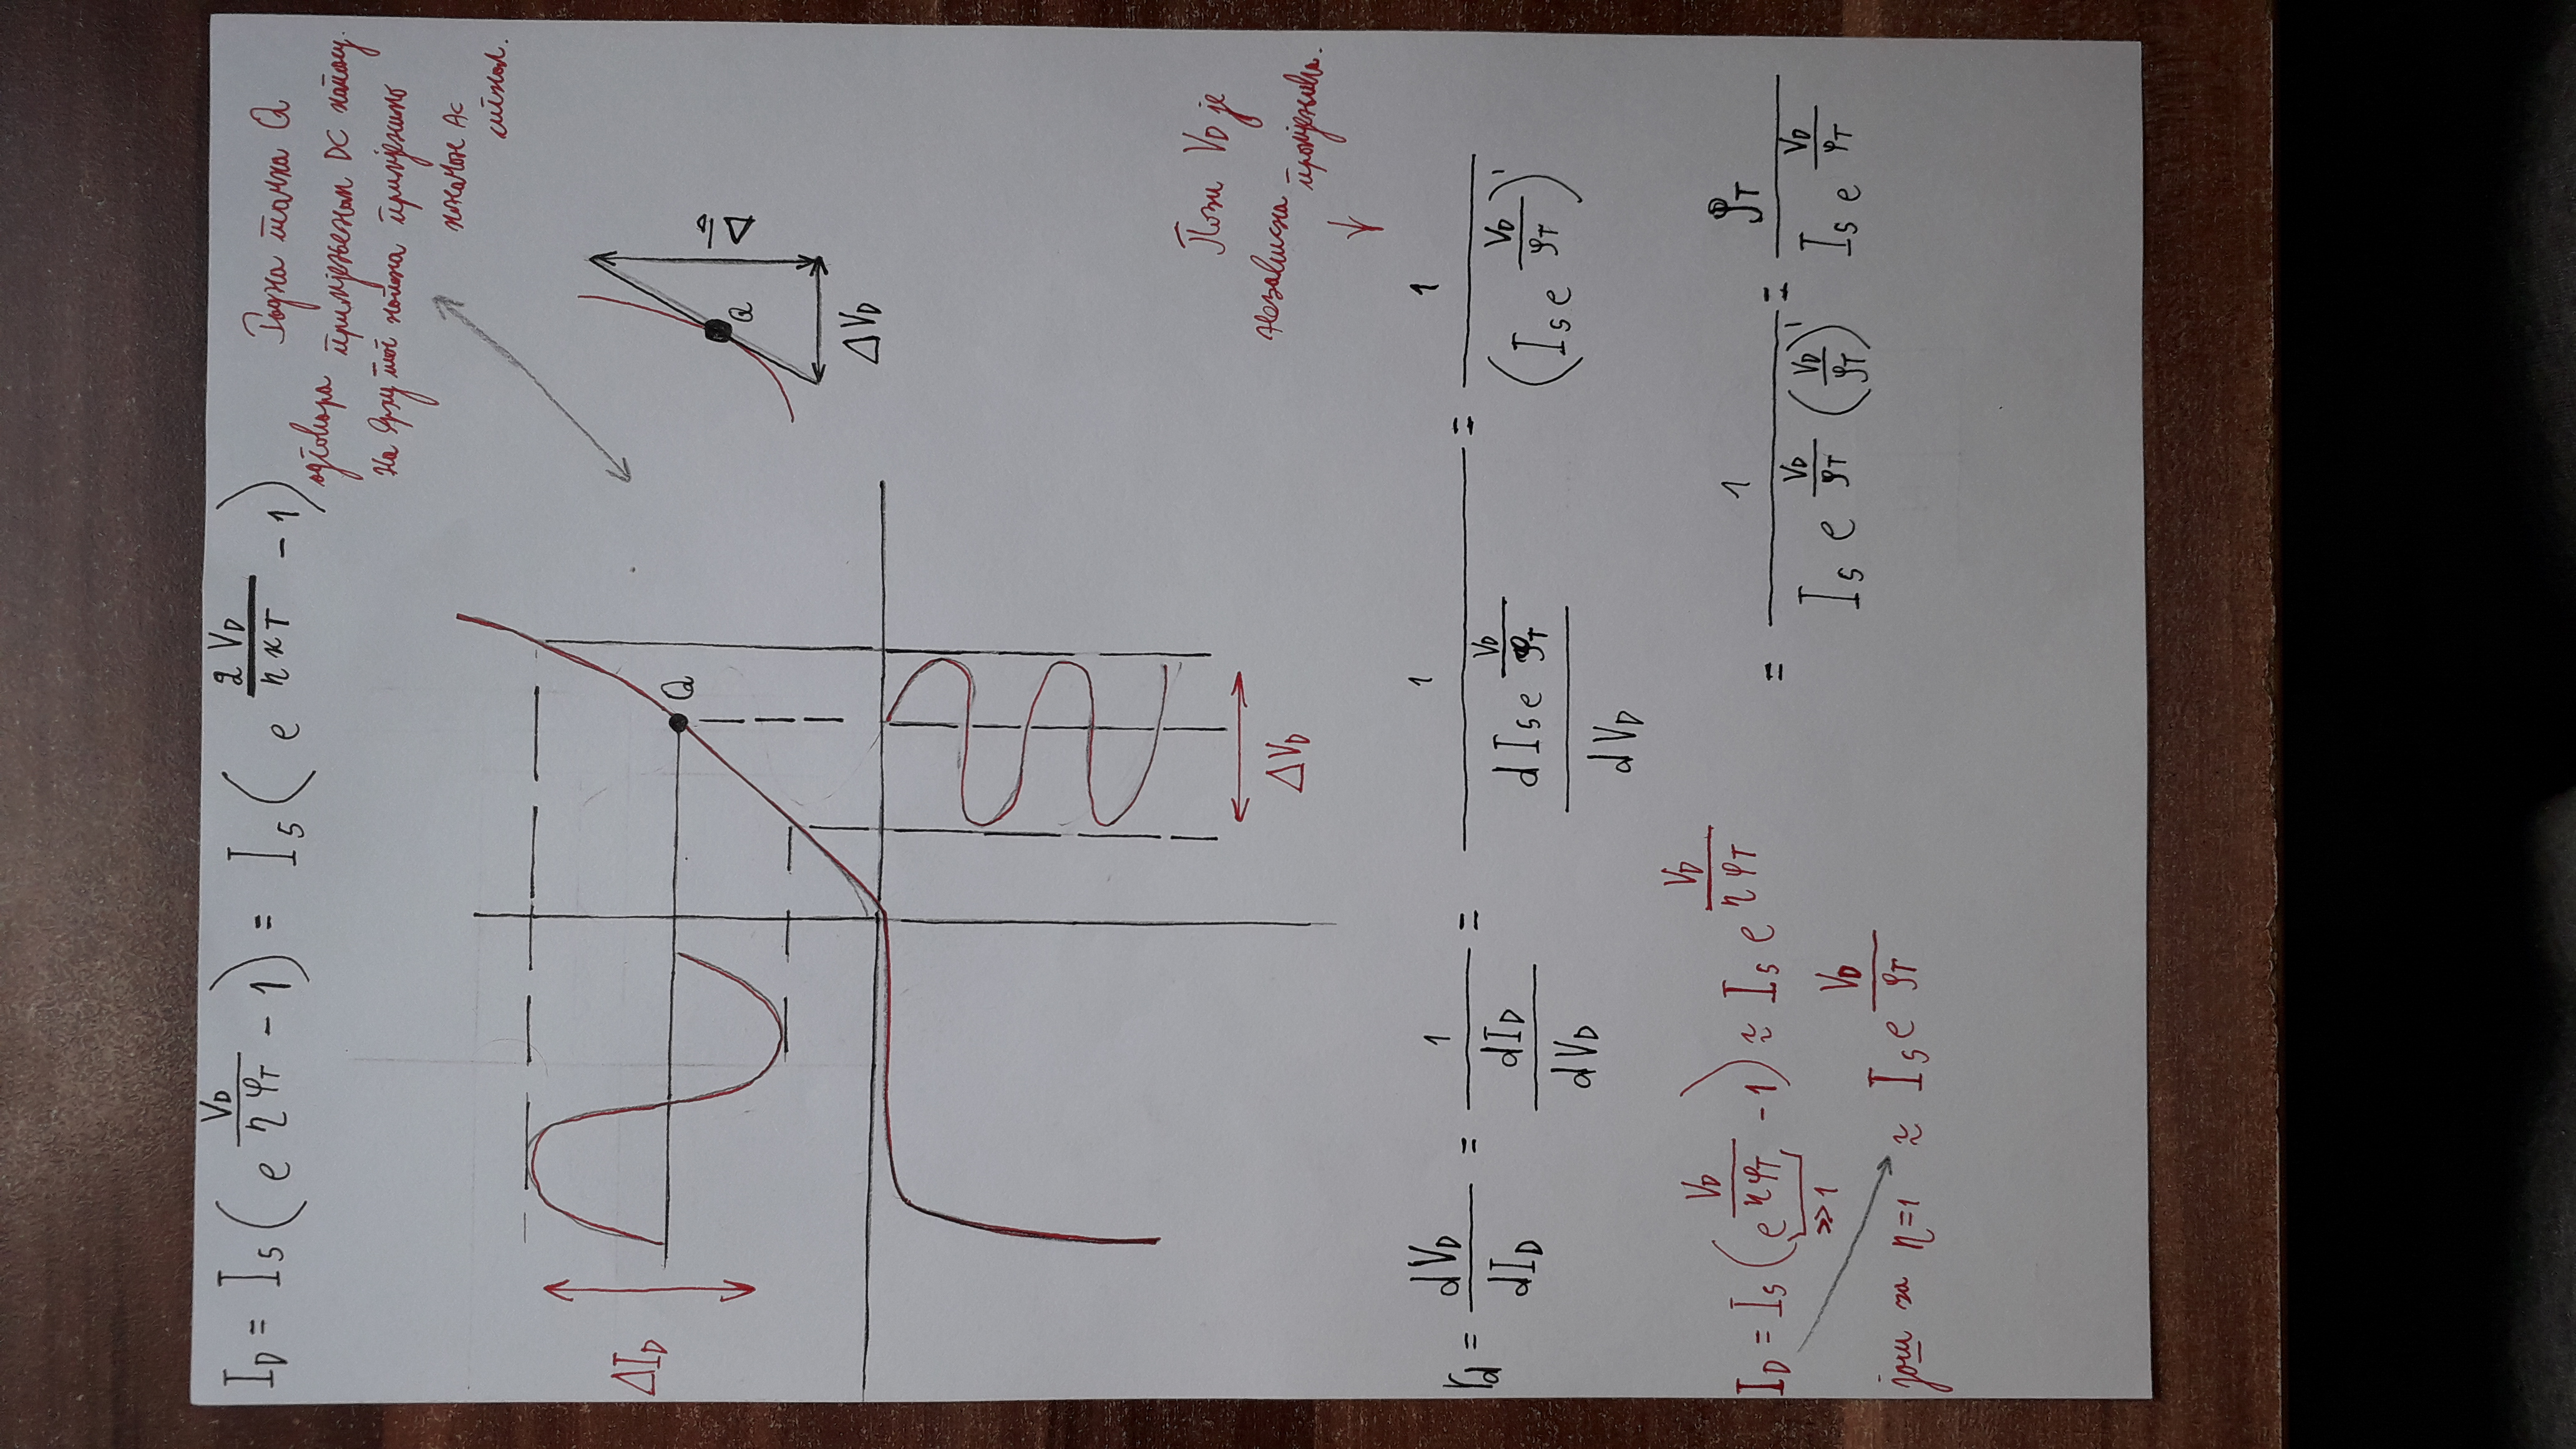 I_D = I_S ( e^{V_D / η φ_T} - 1 ) = I_S ( e^{q V_D / η κ T} - 1 )
Радна тачка Q
одговара примјењеном DC напону.
На врху тог напона примјенимо
AC
сигнал.
ΔI_D
Q
Q
ΔI_D
ΔV_D
ΔV_D
Пази V_D је
независна
промјењива.
r_d = dV_D / dI_D = 1 / (dI_D / dV_D) = 1 / (d I_S e^{V_D / φ_T} / dV_D) = 1 / (I_S e^{V_D / φ_T})'
I_D = I_S ( e^{V_D / η φ_T} - 1 ) ≈ I_S e^{V_D / η φ_T}
>> 1
= 1 / (I_S e^{V_D / φ_T} (V_D / φ_T)') = φ_T / (I_S e^{V_D / φ_T})
још за η = 1 ≈ I_S e^{V_D / φ_T}